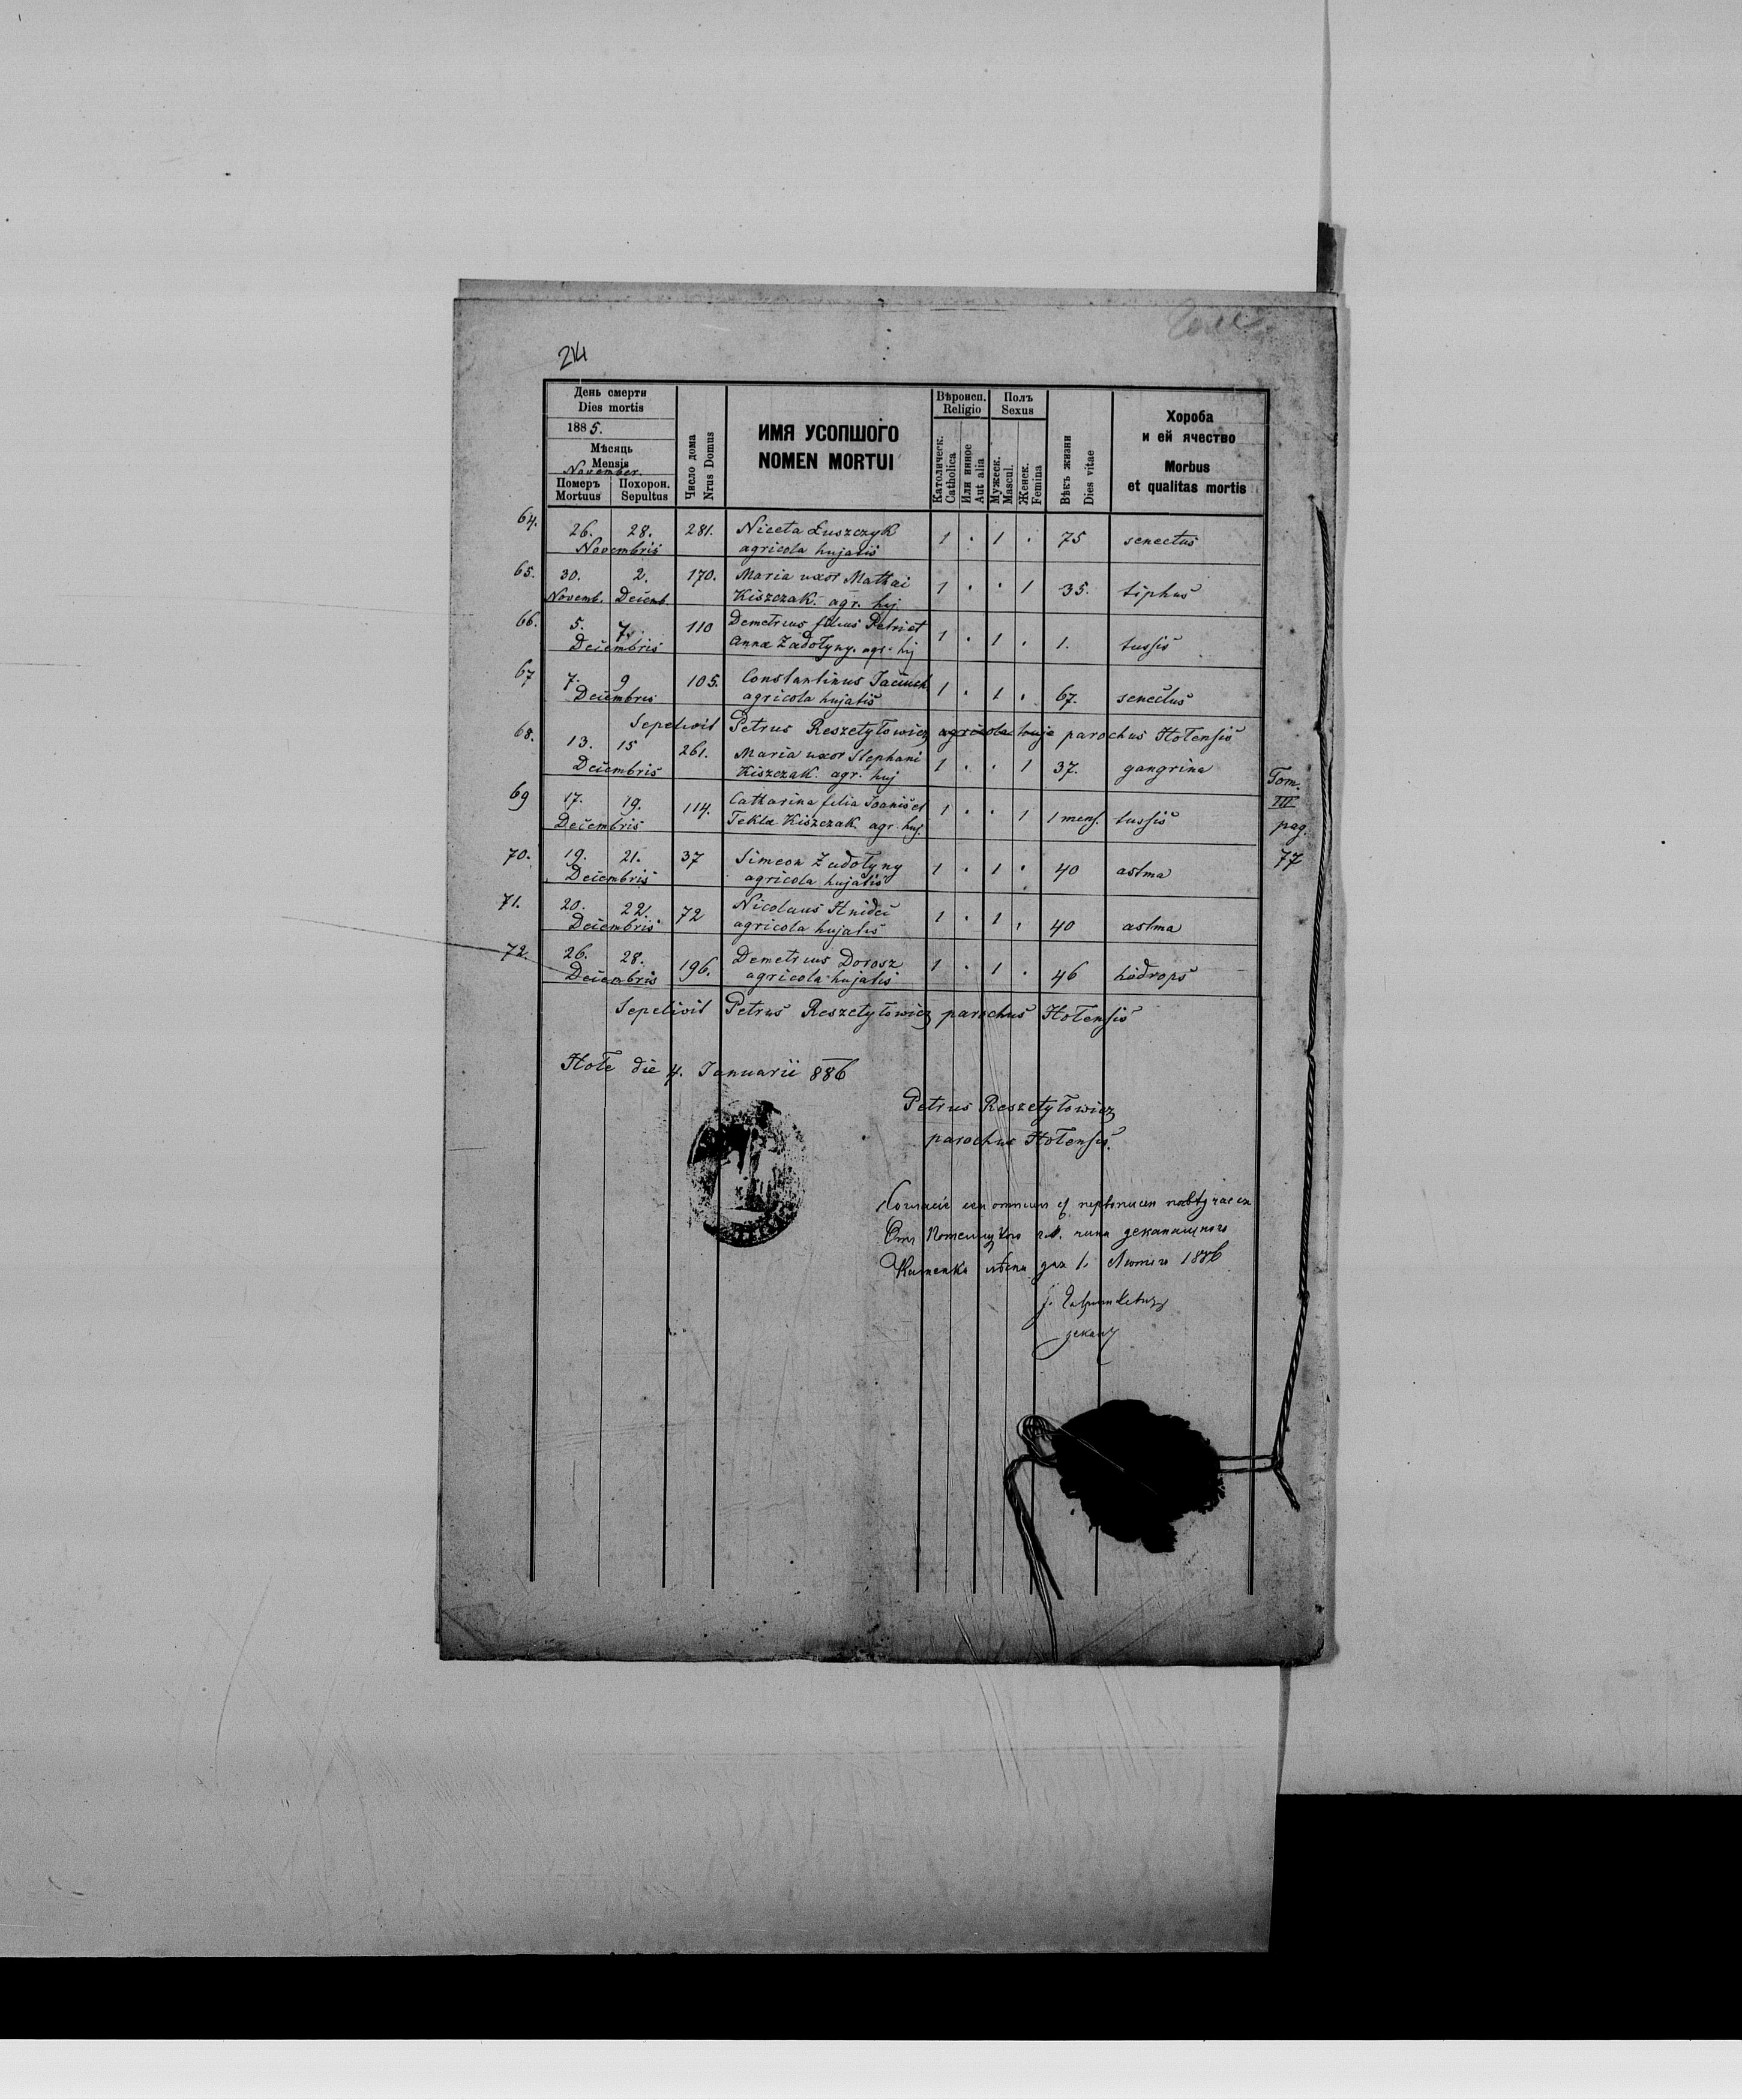 214
День смерти
Dies mortis
1885.
Мѣсяць
Mensis
November.
Померъ
Mortuus
Похорон.
Sepultus
Число дома
Nrus Domus
ИМЯ УСОПШОГО
NOMEN MORTUI
Вѣроисп.
Religio
Католическ.
Catholica
Или инное
Aut alia
Полъ
Sexus
Мужеск.
Mascul.
Женск.
Femina
Вѣкъ жизни
Dies vitae
Хороба
и ей ячество
Morbus
et qualitas mortis
64. 26. 28. 281. Niceta Łuszczyk 1 . 1 . 75 senectus
Novembris agricola hujatis
65. 30. 2. 170. Maria uxor Mathai 1 . . 1 35. tiphus
Novemb. Decemb. Kiszczak. agr. huj
66. 5. 7. 110 Demetrius filius Petri et 1 . 1 . 1. tussis
Decembris Annæ Zadotyny. agr. hj
67 7. 9 105. Constantinus Jaciuch 1 . 1 . 67. senectus
Decembris agricola hujatis
Sepelivit Petrus Reszetyłowicz agricola huja parochus Hołensis
68. 13. 15 261. Maria uxor Stephani 1 . . 1 37. gangrina
Decembris Kiszczak. agr. huj
69 17. 19. 114. Catharina filia Joanis et 1 . . 1 1 mens. tussis
Decembris Teklæ Kiszczak agr. huj.
70. 19. 21. 37 Simeon Zadotyny 1 . 1 . 40 astma
Decembris agricola hujatis
71. 20. 22. 72 Nicolaus Hnidei 1 . 1 . 40 astma
Decembris agricola hujatis
72. 26. 28. 196. Demetrius Dorosz 1 . 1 . 46 hidrops
Decembris agricola hujatis
Sepelivit Petrus Reszetyłowicz parochus Hołensis
Tom.
III
pag.
77
Hołe die 4. Januarii 886
Petrus Reszetyłowicz
parochus Hołensis.
дня 1. Лютого 1886
деканъ